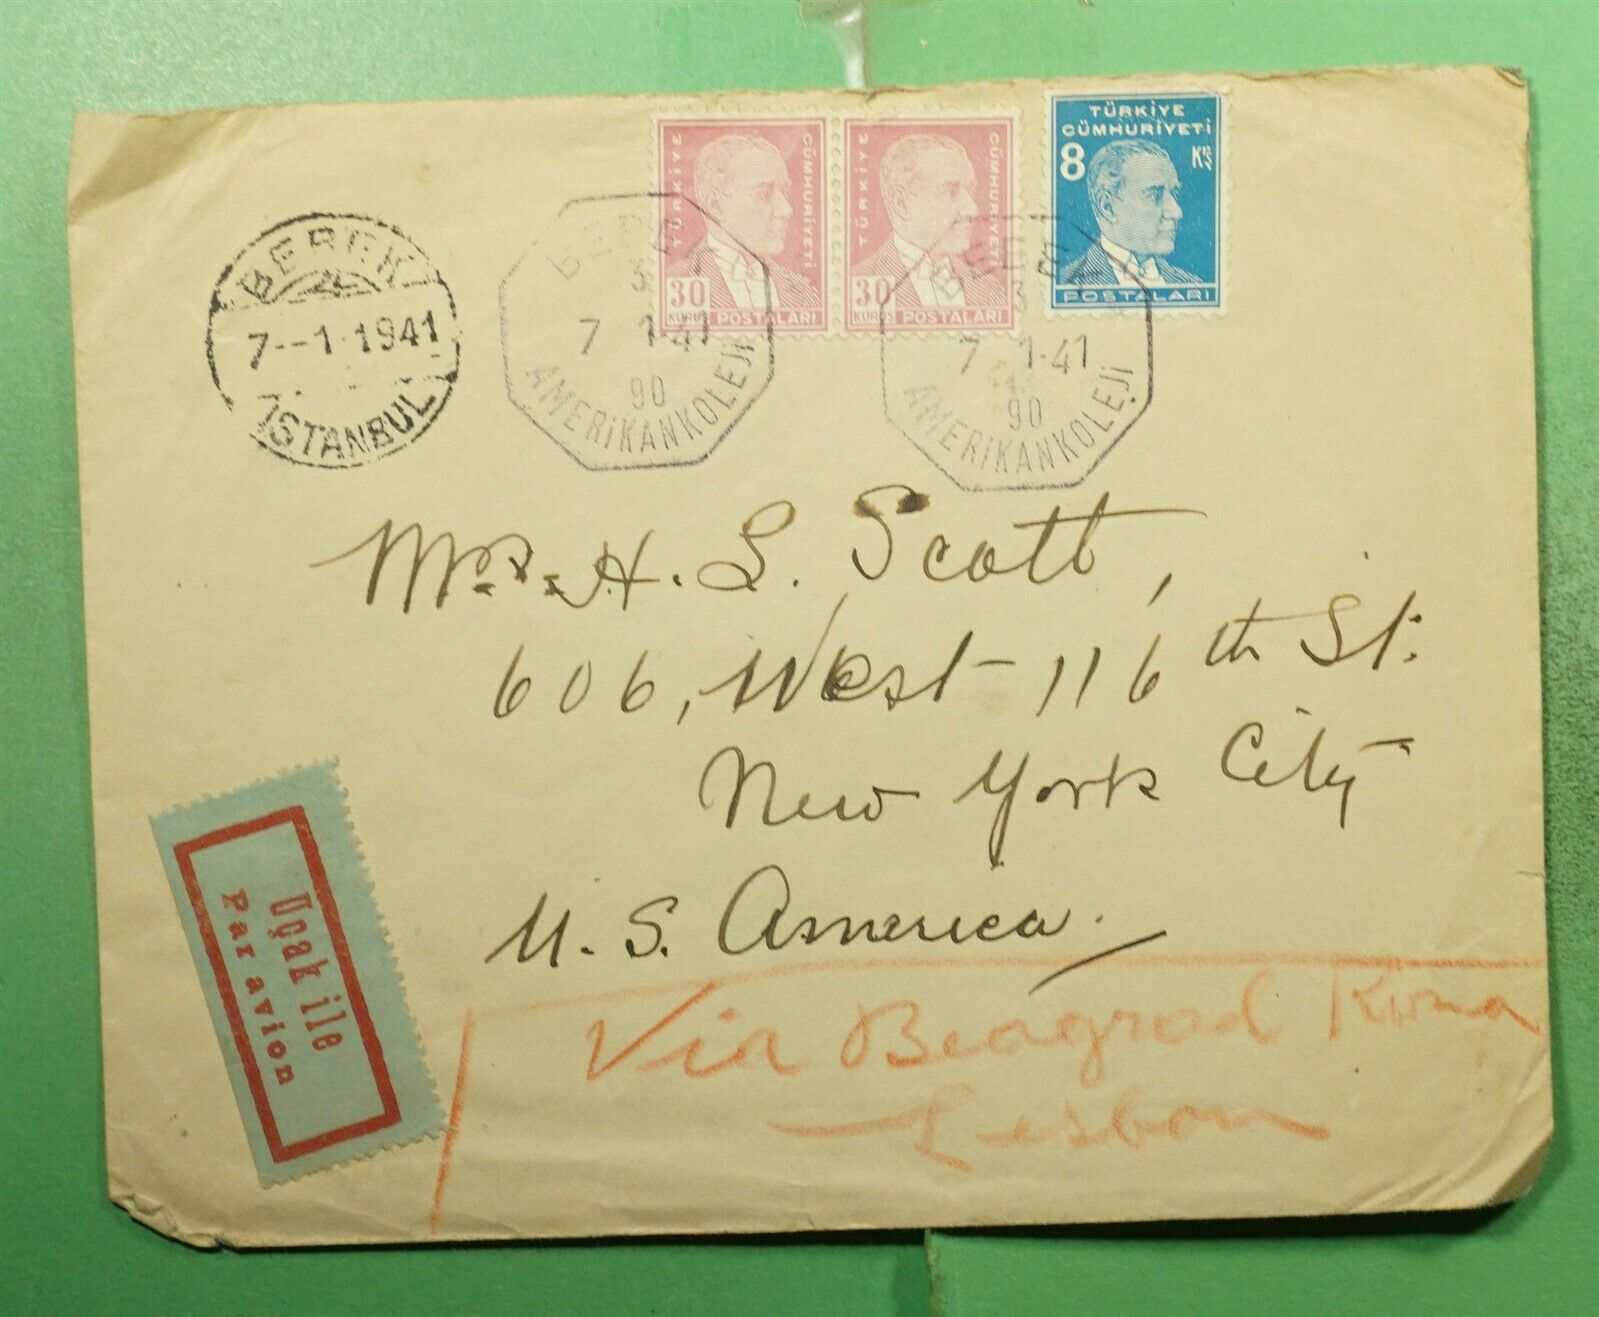 TÜRKİYE CÜMHURİYETİ
30
KURUŞ POSTALARI
TÜRKİYE CÜMHURİYETİ
30
KURUŞ POSTALARI
TÜRKİYE
CÜMHURİYETİ
8 Krş
POSTALARI
BEBEK
7--1-1941
İSTANBUL
BEBEK
3
7 1-41
90
AMERİKANKOLEJİ
BEBEK
3
7 1-41
90
AMERİKANKOLEJİ
Mrs. H. L. Scott,
606, West 116th St.
New York City
U. S. America.
Via Beograd Roma
Lesbon
Uçak ile
Par avion